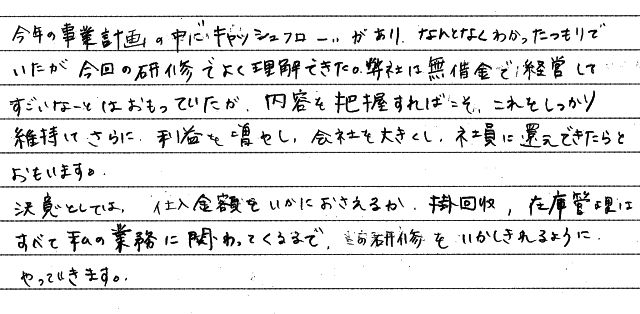 今年の事業計画の中に"キャッシュフロー"があり、なんとなくわかったつもりで
いたが今回の研修でよく理解できた。弊社は無借金で経営して
すごいなーとはおもっていたが、内容を把握すればこそ、これをしっかり
維持してさらに、利益を増やし、会社を大きくし、社員に還元できたらと
おもいます。
決意としては、仕入金額をいかにおさえるか、掛回収、在庫管理は
すべて私の業務に関わってくるので、研修をいかしきれるように
やっていきます。